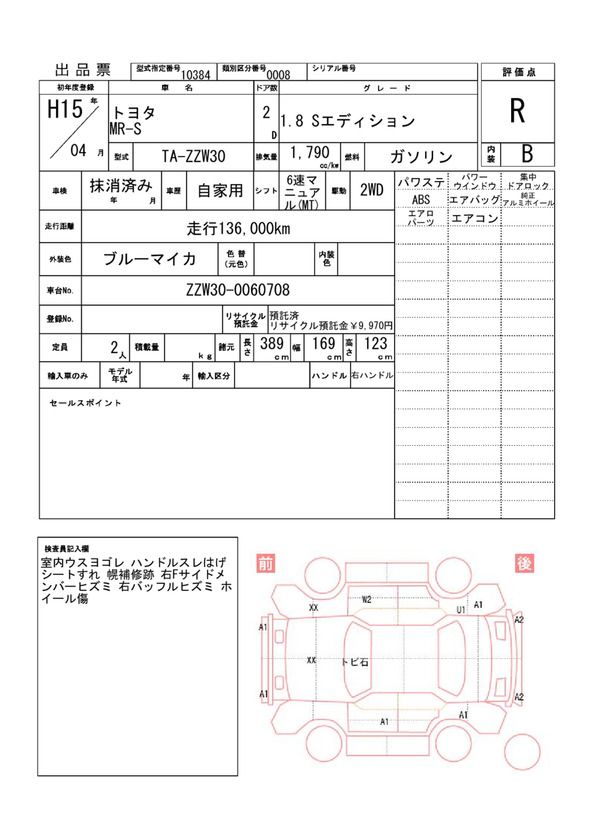 出品票
型式指定番号 10384 類別区分番号 0008 シリアル番号
評価点
初年度登録 車名 ドア数 グレード
H15年 トヨタ 2D 1.8 Sエディション R
MR-S
04月 型式 TA-ZZW30 排気量 1,790cc/kw 燃料 ガソリン 内装 B
車検 抹消済み 年 月 車歴 自家用 シフト 6速マニュアル(MT) 駆動 2WD
パワステ パワーウインドウ 集中ドアロック
ABS エアバッグ 純正アルミホイール
エアロパーツ エアコン
走行距離 走行136,000km
外装色 ブルーマイカ 色替(元色) 内装色
車台No. ZZW30-0060708
登録No. リサイクル預託金 預託済
リサイクル預託金¥9,970円
定員 2人 積載量 kg 諸元 長さ 389cm 幅 169cm 高さ 123cm
輸入車のみ モデル年式 年 輸入区分 ハンドル 右ハンドル
セールスポイント
検査員記入欄
室内ウスヨゴレ ハンドルスレはげ
シートすれ 幌補修跡 右Fサイドメ
ンバーヒズミ 右バッフルヒズミ ホ
イール傷
前 後
XX W2 U1 A1
A1 A2
XX トビ石
A1 A2
A1 A1